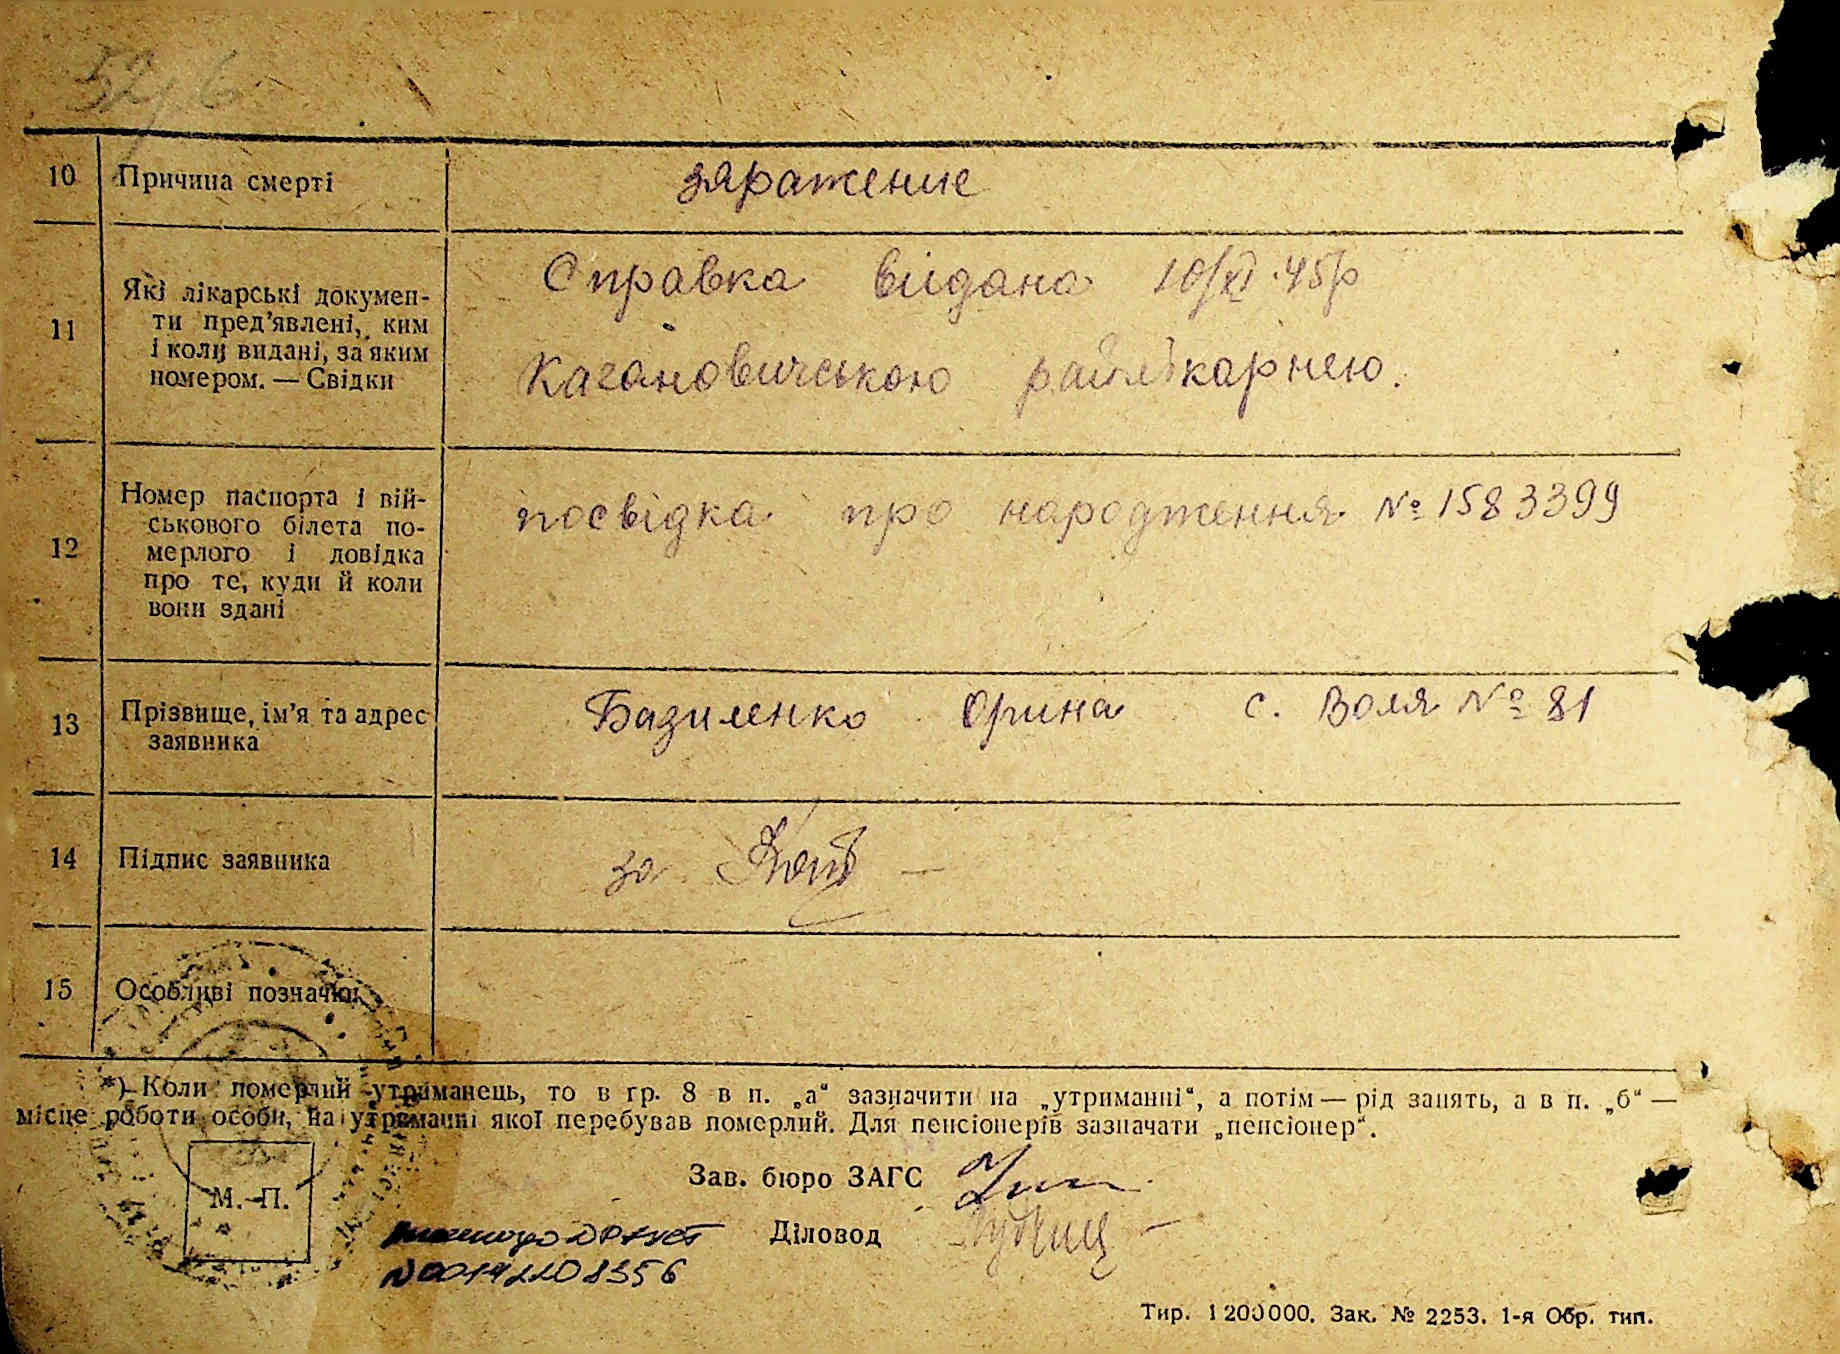 10 Причина смерті заражение
11 Які лікарські докумен-
ти пред'явлені, ким
і коли видані, за яким
номером. — Свідки
Справка видана 10/XI.45р
Кагановичською райлікарнею.
12 Номер паспорта і вій-
ськового білета по-
мерлого і довідка
про те, куди й коли
вони здані
посвідка про народження № 1583399
13 Прізвище, ім'я та адрес
заявника
Базиленко Орина с. Воля № 81
14 Підпис заявника за
15 Особливі позначки
*) Коли померлий утриманець, то в гр. 8 в п. „а“ зазначити на „утриманні“, а потім — рід занять, а в п. „б“ —
місце роботи особи, на утриманні якої перебував померлий. Для пенсіонерів зазначати „пенсіонер“.
Зав. бюро ЗАГС
М. П.
Діловод
Тир. 1200000. Зак. № 2253. 1-я Обр. тип.